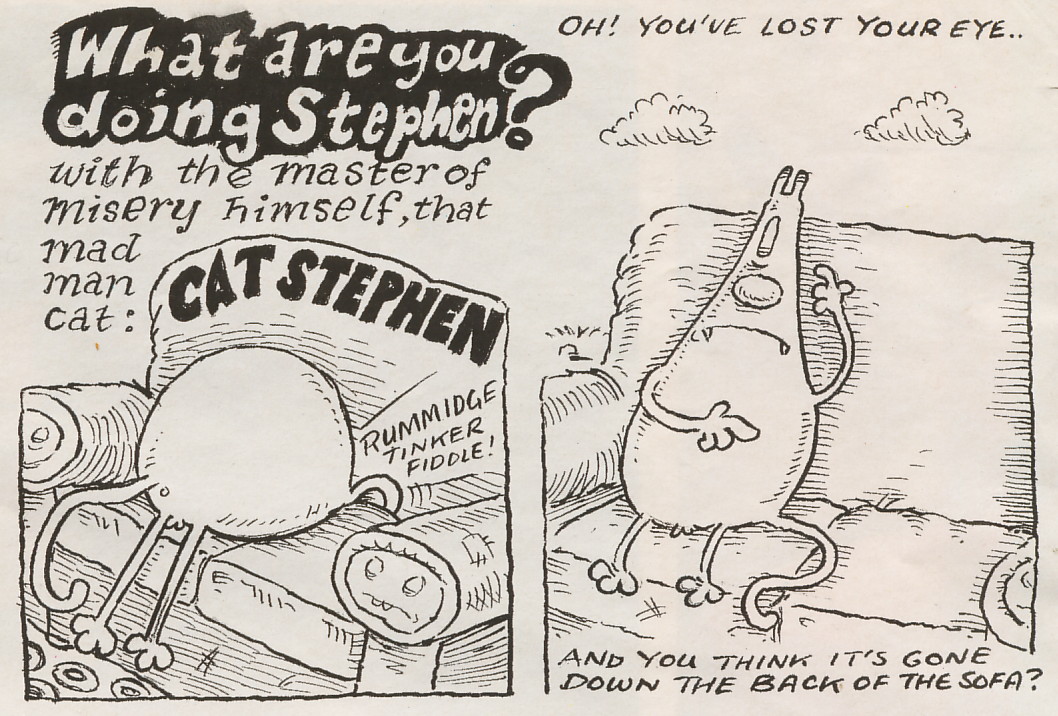 What are you
doing Stephen?
with the master of
misery himself, that
mad
man
cat:
CAT STEPHEN
RUMMIDGE
TINKER
FIDDLE!
OH! YOU'VE LOST YOUR EYE..
AND YOU THINK IT'S GONE
DOWN THE BACK OF THE SOFA?